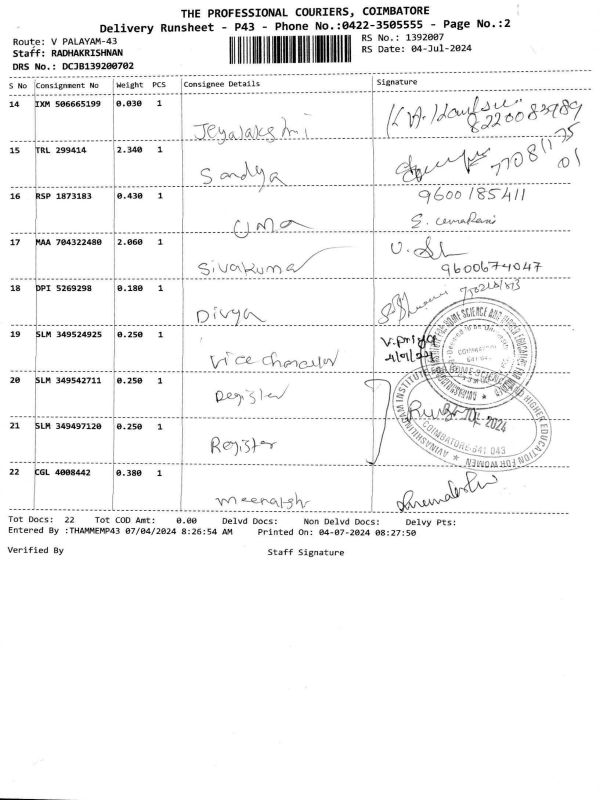 THE PROFESSIONAL COURIERS, COIMBATORE
Delivery Runsheet - P43 - Phone No.:0422-3505555 - Page No.:2
Route: V PALAYAM-43
Staff: RADHAKRISHNAN
DRS No.: DCJB139200702
RS No.: 1392007
RS Date: 04-Jul-2024
S No Consignment No Weight PCS Consignee Details Signature
14 IXM 506665199 0.030 1
Jeyalakshmi
15 TRL 299414 2.340 1
Sandya
16 RSP 1873183 0.430 1 9600185411
Uma
17 MAA 704322480 2.060 1
Sivakumar 9600674047
18 DPI 5269298 0.180 1
Divya
19 SLM 349524925 0.250 1 V.priya
Vice chancellor
20 SLM 349542711 0.250 1
Register
21 SLM 349497120 0.250 1
Register
AVINASHILINGAM INSTITUTE FOR HOME SCIENCE AND HIGHER EDUCATION FOR WOMEN
COIMBATORE-641 043
22 CGL 4008442 0.380 1
meenatsh
Tot Docs: 22 Tot COD Amt: 0.00 Delvd Docs: Non Delvd Docs: Delvy Pts:
Entered By :THAMMEMP43 07/04/2024 8:26:54 AM Printed On: 04-07-2024 08:27:50
Verified By Staff Signature